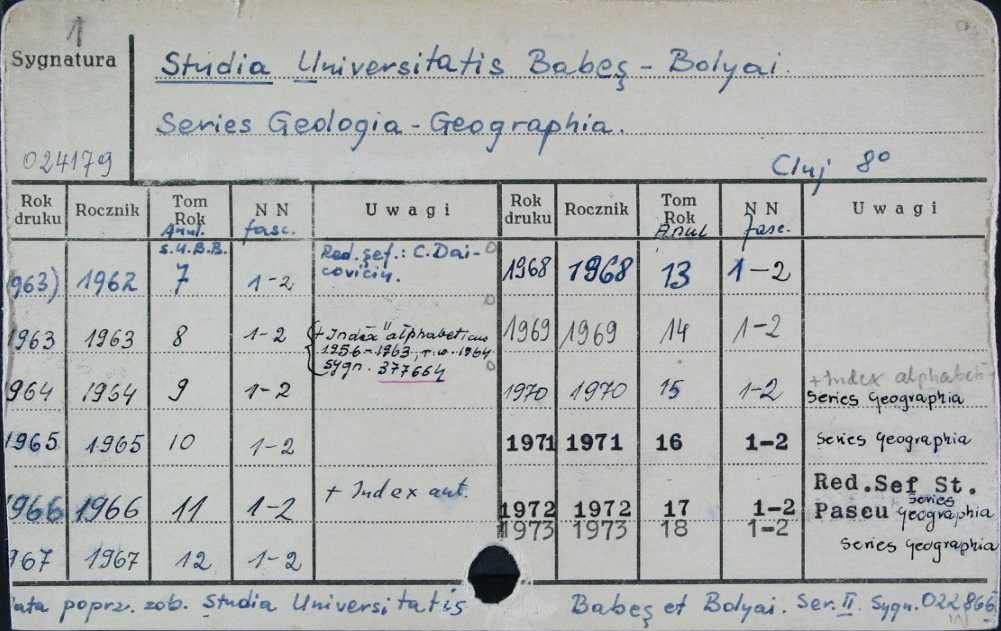 1
Sygnatura
Studia Universitatis Babeş - Bolyai.
Series Geologia - Geographia.
024179
Cluj 8°
Rok druku Rocznik Tom Rok NN Uwagi Rok druku Rocznik Tom Rok NN Uwagi
Anul. fasc. Anul fasc.
S.U.B.B. Red. şef.: C. Dai-
963) 1962 7 1-2 coviciu. 1968 1968 13 1-2
1963 1963 8 1-2 + Index "alphabeticus 1969 1969 14 1-2
1956-1963, r.w. 1964
sygn. 377664
964 1964 9 1-2 1970 1970 15 1-2 + Index alphabeti
Series Geographia
1965 1965 10 1-2 1971 1971 16 1-2 Series Geographia
1966 1966 11 1-2 + Index aut. 1972 1972 17 1-2 Red.Sef St.
Paseu Series Geographia
1973 1973 18 1-2 Series Geographia
967 1967 12 1-2
lata poprz. zob. Studia Universitatis Babeş et Bolyai. Ser. II. Sygn. 022866